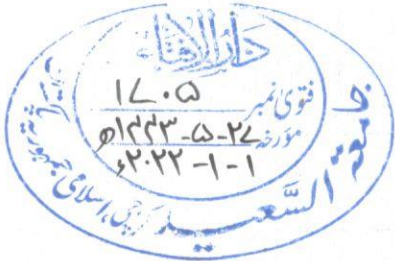 دارالافتاء
فتوی نمبر ۱۷۰۵
مؤرخہ ۲۷-۵-۱۴۴۳ھ
۱-۱-۲۰۲۲ء
جامعة السَّعید
کراچی، اسلامی جمہوریہ